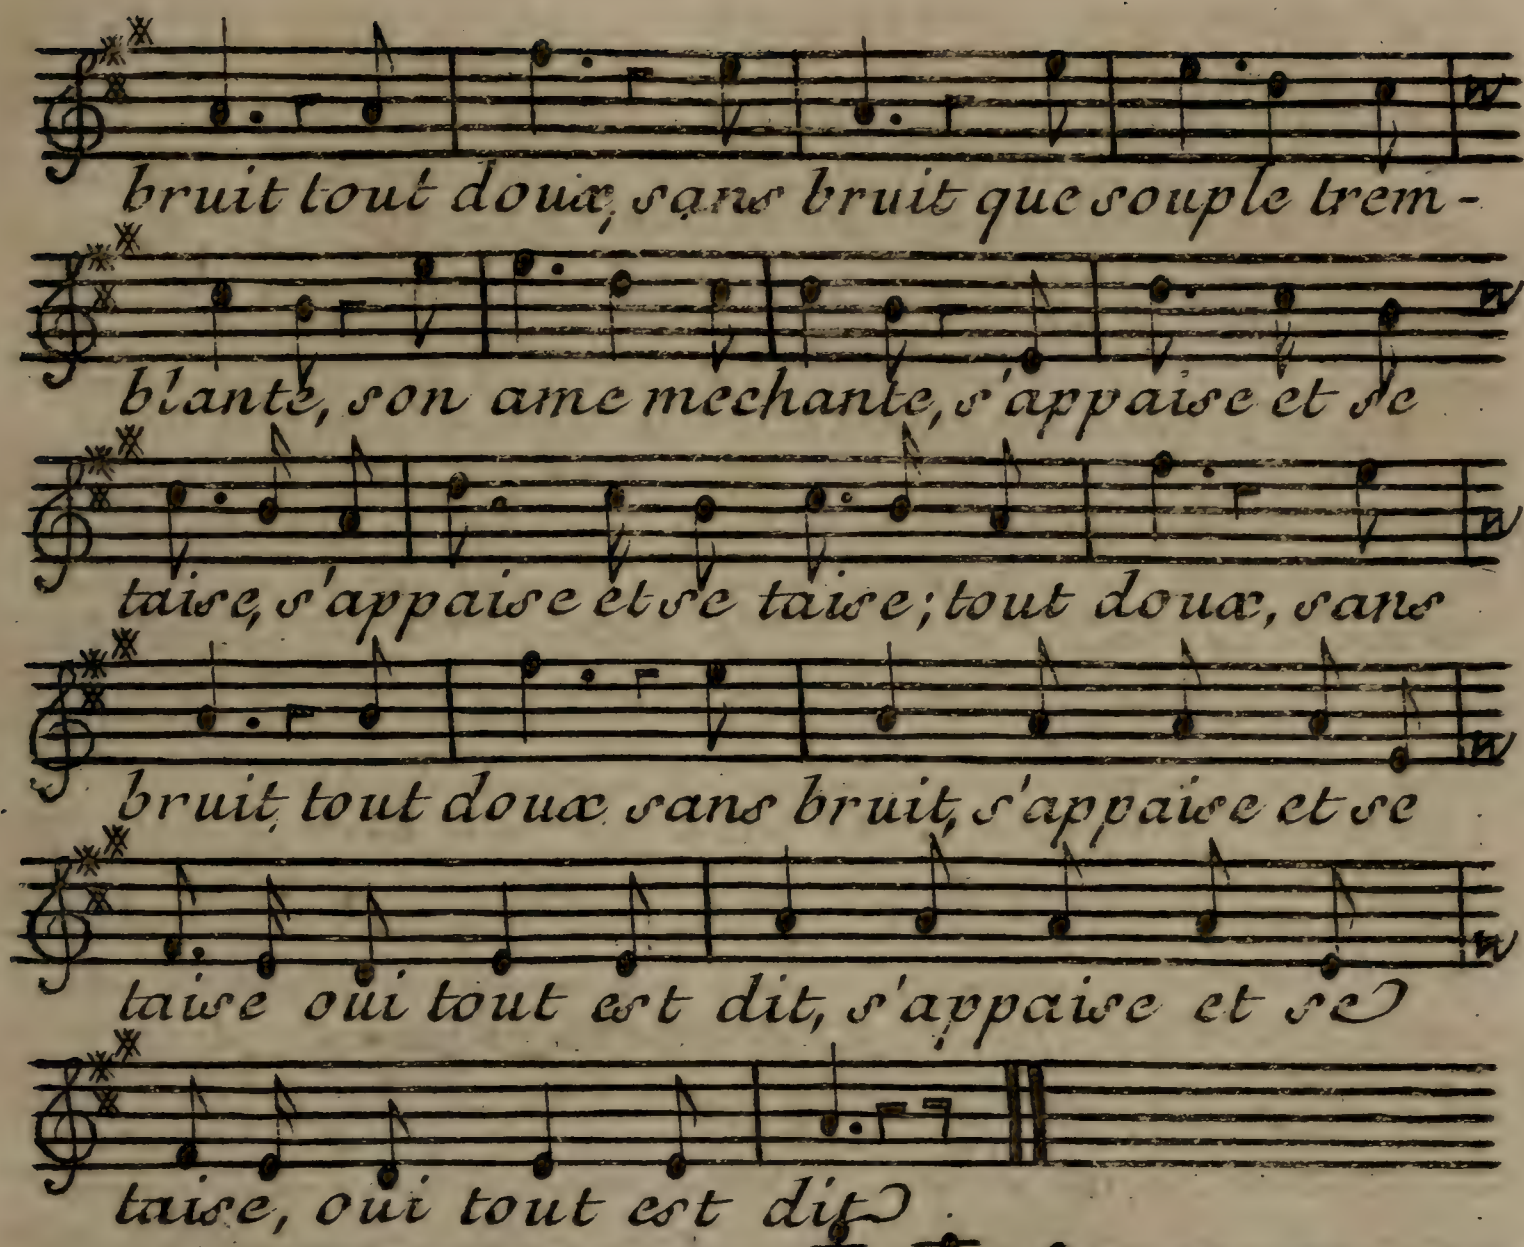 bruit tout doux, sans bruit que souple trem-
blante, son ame mechante, s'appaise et se
taise, s'appaise et se taise; tout doux, sans
bruit, tout doux sans bruit, s'appaise et se
taise oui tout est dit, s'appaise et se
taise, oui tout est dit